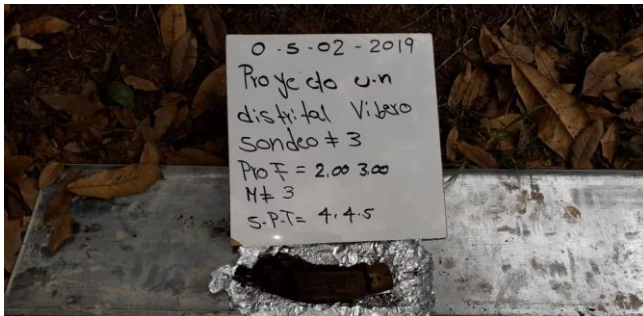 0.5-02-2019
Proyecto u.n
distrital Vibero
sondeo # 3
Prof = 2.00 3.00
M# 3
S.P.T= 4.4.5